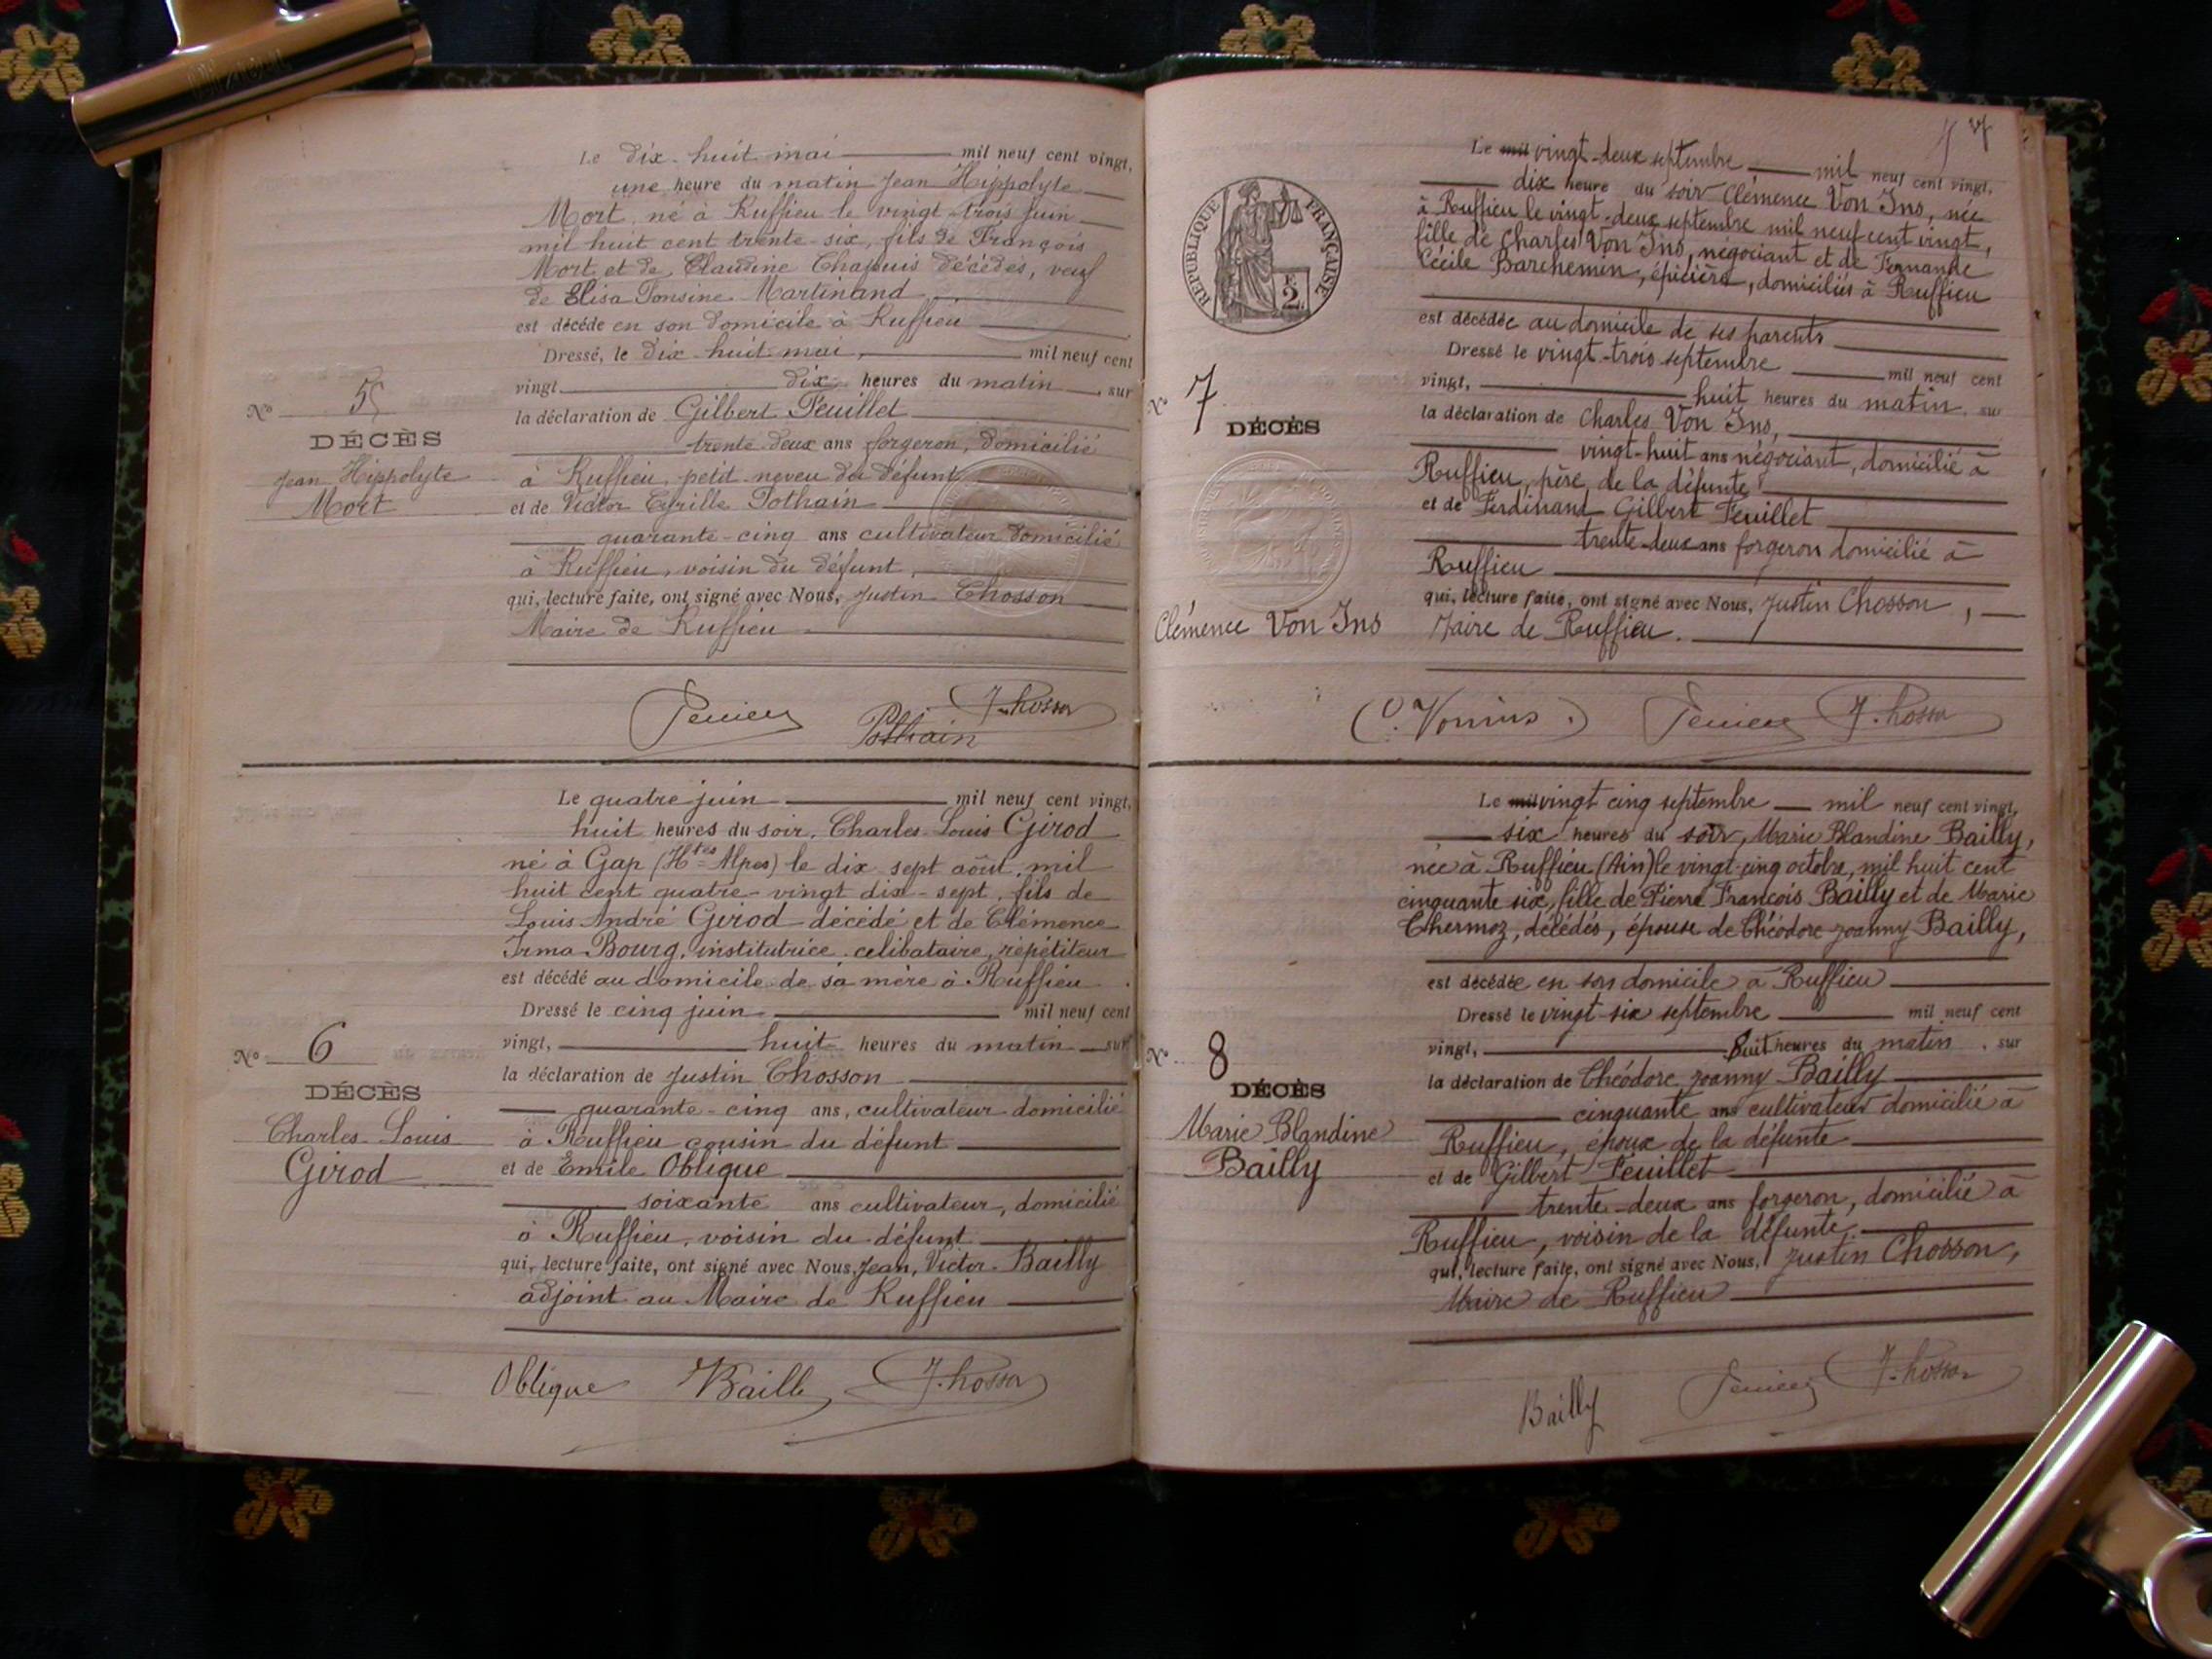 Le dix-huit mai mil neuf cent vingt,
une heure du matin Jean Hippolyte
Mort, né à Ruffieu le vingt-trois juin
mil huit cent trente-six, fils de François
Mort et de Claudine Chapuis décédés, veuf
de Elisa Tonsine Martinand
est décédé en son domicile à Ruffieu
Dressé, le dix-huit mai, mil neuf cent
vingt dix heures du matin, sur
la déclaration de Gilbert Feuillet
trente-deux ans forgeron, domicilié
à Ruffieu, petit neveu du défunt
et de Victor Cyrille Pothain
quarante-cinq ans cultivateur domicilié
à Ruffieu, voisin du défunt,
qui, lecture faite, ont signé avec Nous, Justin Chosson
Maire de Ruffieu
No 5
DÉCÈS
Jean Hippolyte
Mort
Pothain J. Chosson
Le quatre juin mil neuf cent vingt,
huit heures du soir, Charles Louis Girod
né à Gap (Htes Alpes) le dix sept août, mil
huit cent quatre-vingt dix-sept, fils de
Louis André Girod décédé et de Clémence
Irma Bourg, institutrice, celibataire, répétiteur
est décédé au domicile de sa mère à Ruffieu
Dressé le cinq juin mil neuf cent
vingt, huit heures du matin sur
la déclaration de Justin Chosson
quarante-cinq ans, cultivateur domicilié
à Ruffieu cousin du défunt
et de Emile Oblique
soixante ans cultivateur, domicilié
à Ruffieu, voisin du défunt
qui, lecture faite, ont signé avec Nous, Jean, Victor Bailly
adjoint au Maire de Ruffieu
No 6
DÉCÈS
Charles Louis
Girod
Oblique Bailly J. Chosson
RÉPUBLIQUE FRANÇAISE
2F
Le mil vingt-deux septembre mil neuf cent vingt,
dix heure du soir Clémence Von Ins, née
à Ruffieu le vingt-deux septembre mil neuf cent vingt,
fille de Charles Von Ins, négociant et de Fernande
Cécile Barchemin, épicière, domiciliés à Ruffieu
est décédée au domicile de ses parents
Dressé le vingt-trois septembre mil neuf cent
vingt, huit heures du matin, sur
la déclaration de Charles Von Ins,
vingt-huit ans négociant, domicilié à
Ruffieu, père de la défunte
et de Ferdinand Gilbert Feuillet
trente-deux ans forgeron domicilié à
Ruffieu
qui, lecture faite, ont signé avec Nous, Justin Chosson,
Maire de Ruffieu.
No 7
DÉCÈS
Clémence Von Ins
J. Chosson
Le mil vingt cinq septembre mil neuf cent vingt,
six heures du soir, Marie Blandine Bailly,
née à Ruffieu (Ain) le vingt-cinq octobre, mil huit cent
cinquante six, fille de Pierre François Bailly et de Marie
Thermoz, décédés, épouse de Théodore Joanny Bailly,
est décédée en son domicile à Ruffieu
Dressé le vingt-six septembre mil neuf cent
vingt, huit heures du matin, sur
la déclaration de Théodore Joanny Bailly
cinquante ans cultivateur domicilié à
Ruffieu, époux de la défunte
et de Gilbert Feuillet
trente-deux ans forgeron, domicilié à
Ruffieu, voisin de la défunte
qui, lecture faite, ont signé avec Nous, Justin Chosson,
Maire de Ruffieu
No 8
DÉCÈS
Marie Blandine
Bailly
Bailly J. Chosson